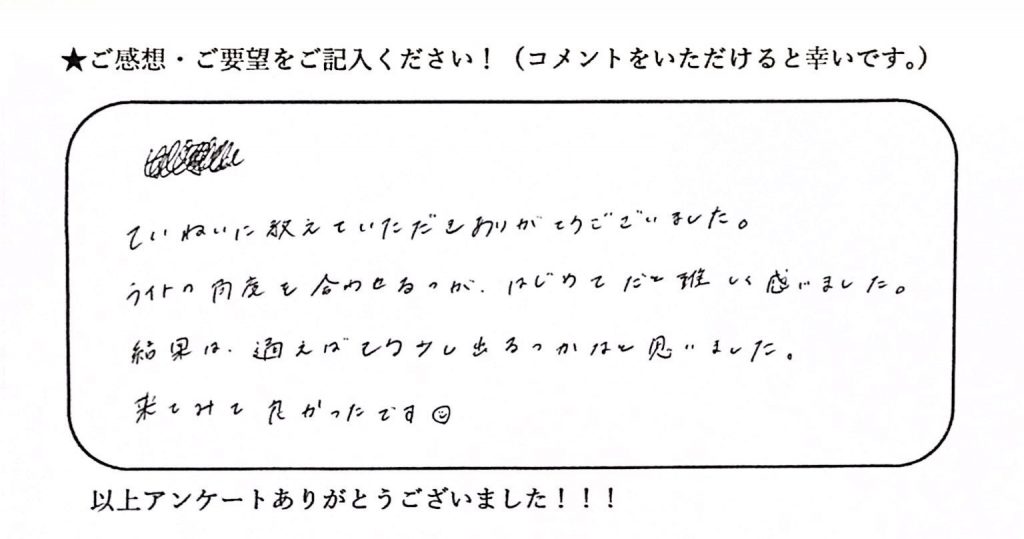 ★ご感想・ご要望をご記入ください！（コメントをいただけると幸いです。）
ていねいに教えていただきありがとうございました。
ライトの角度を合わせるのが、はじめてだと難しく感じました。
結果は、通えばもう少し出るのかなと思いました。
来てみて良かったです☺
以上アンケートありがとうございました！！！